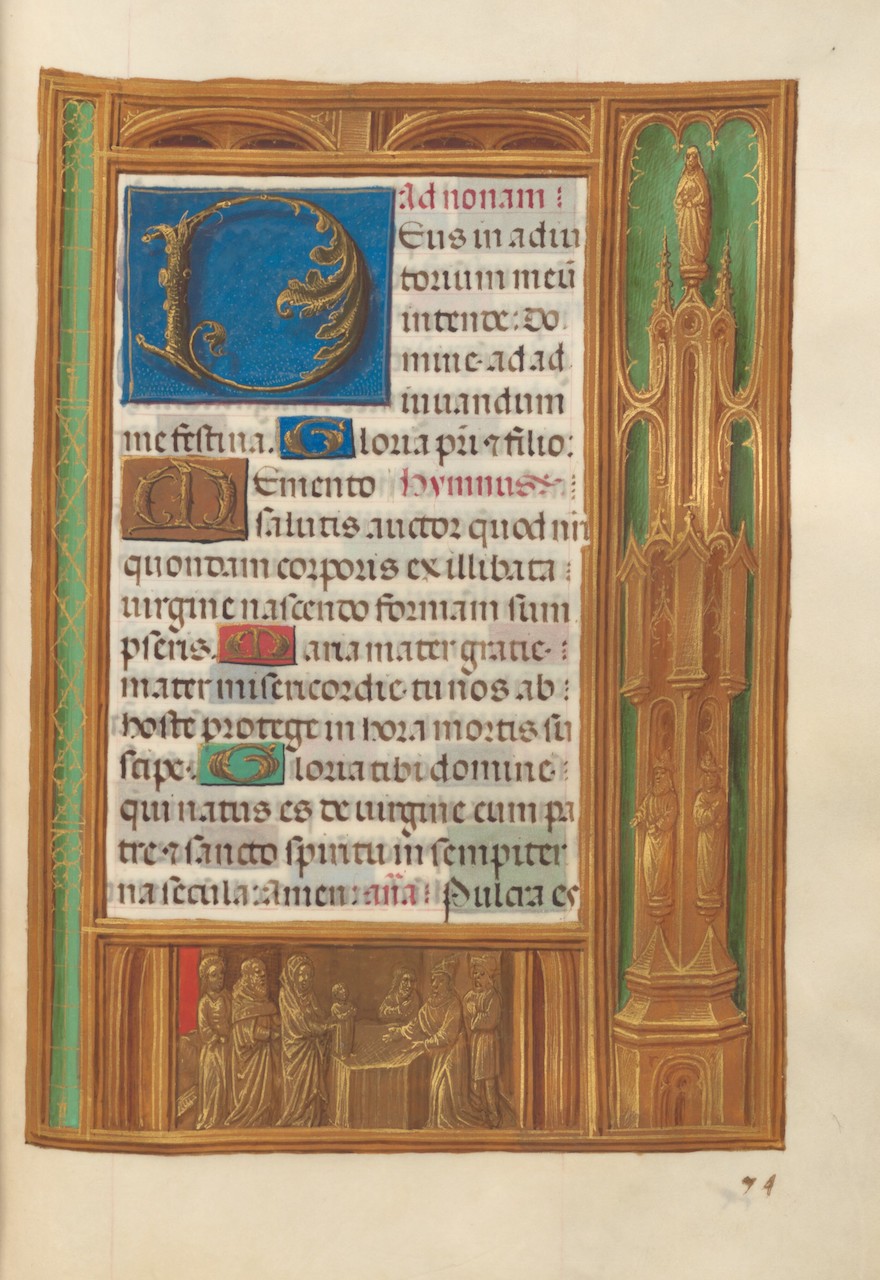 Ad nonam
DEus in adiu
torium meū
intende: Do
mine ad ad
iuuandum
me festina. Gloria pr̄i ⁊ filio:
MEmento hymnus
salutis auctor quod nr̄i
quondam corporis ex illibata
uirgine nascendo formam sum
pseris. Maria mater gratie
mater misericordie tu nos ab
hoste protege in hora mortis su
scipe. Gloria tibi domine
qui natus es de uirgine cum pa
tre ⁊ sancto spiritu in sempiter
na secula: Amen: an̄a: Pulcra es
74